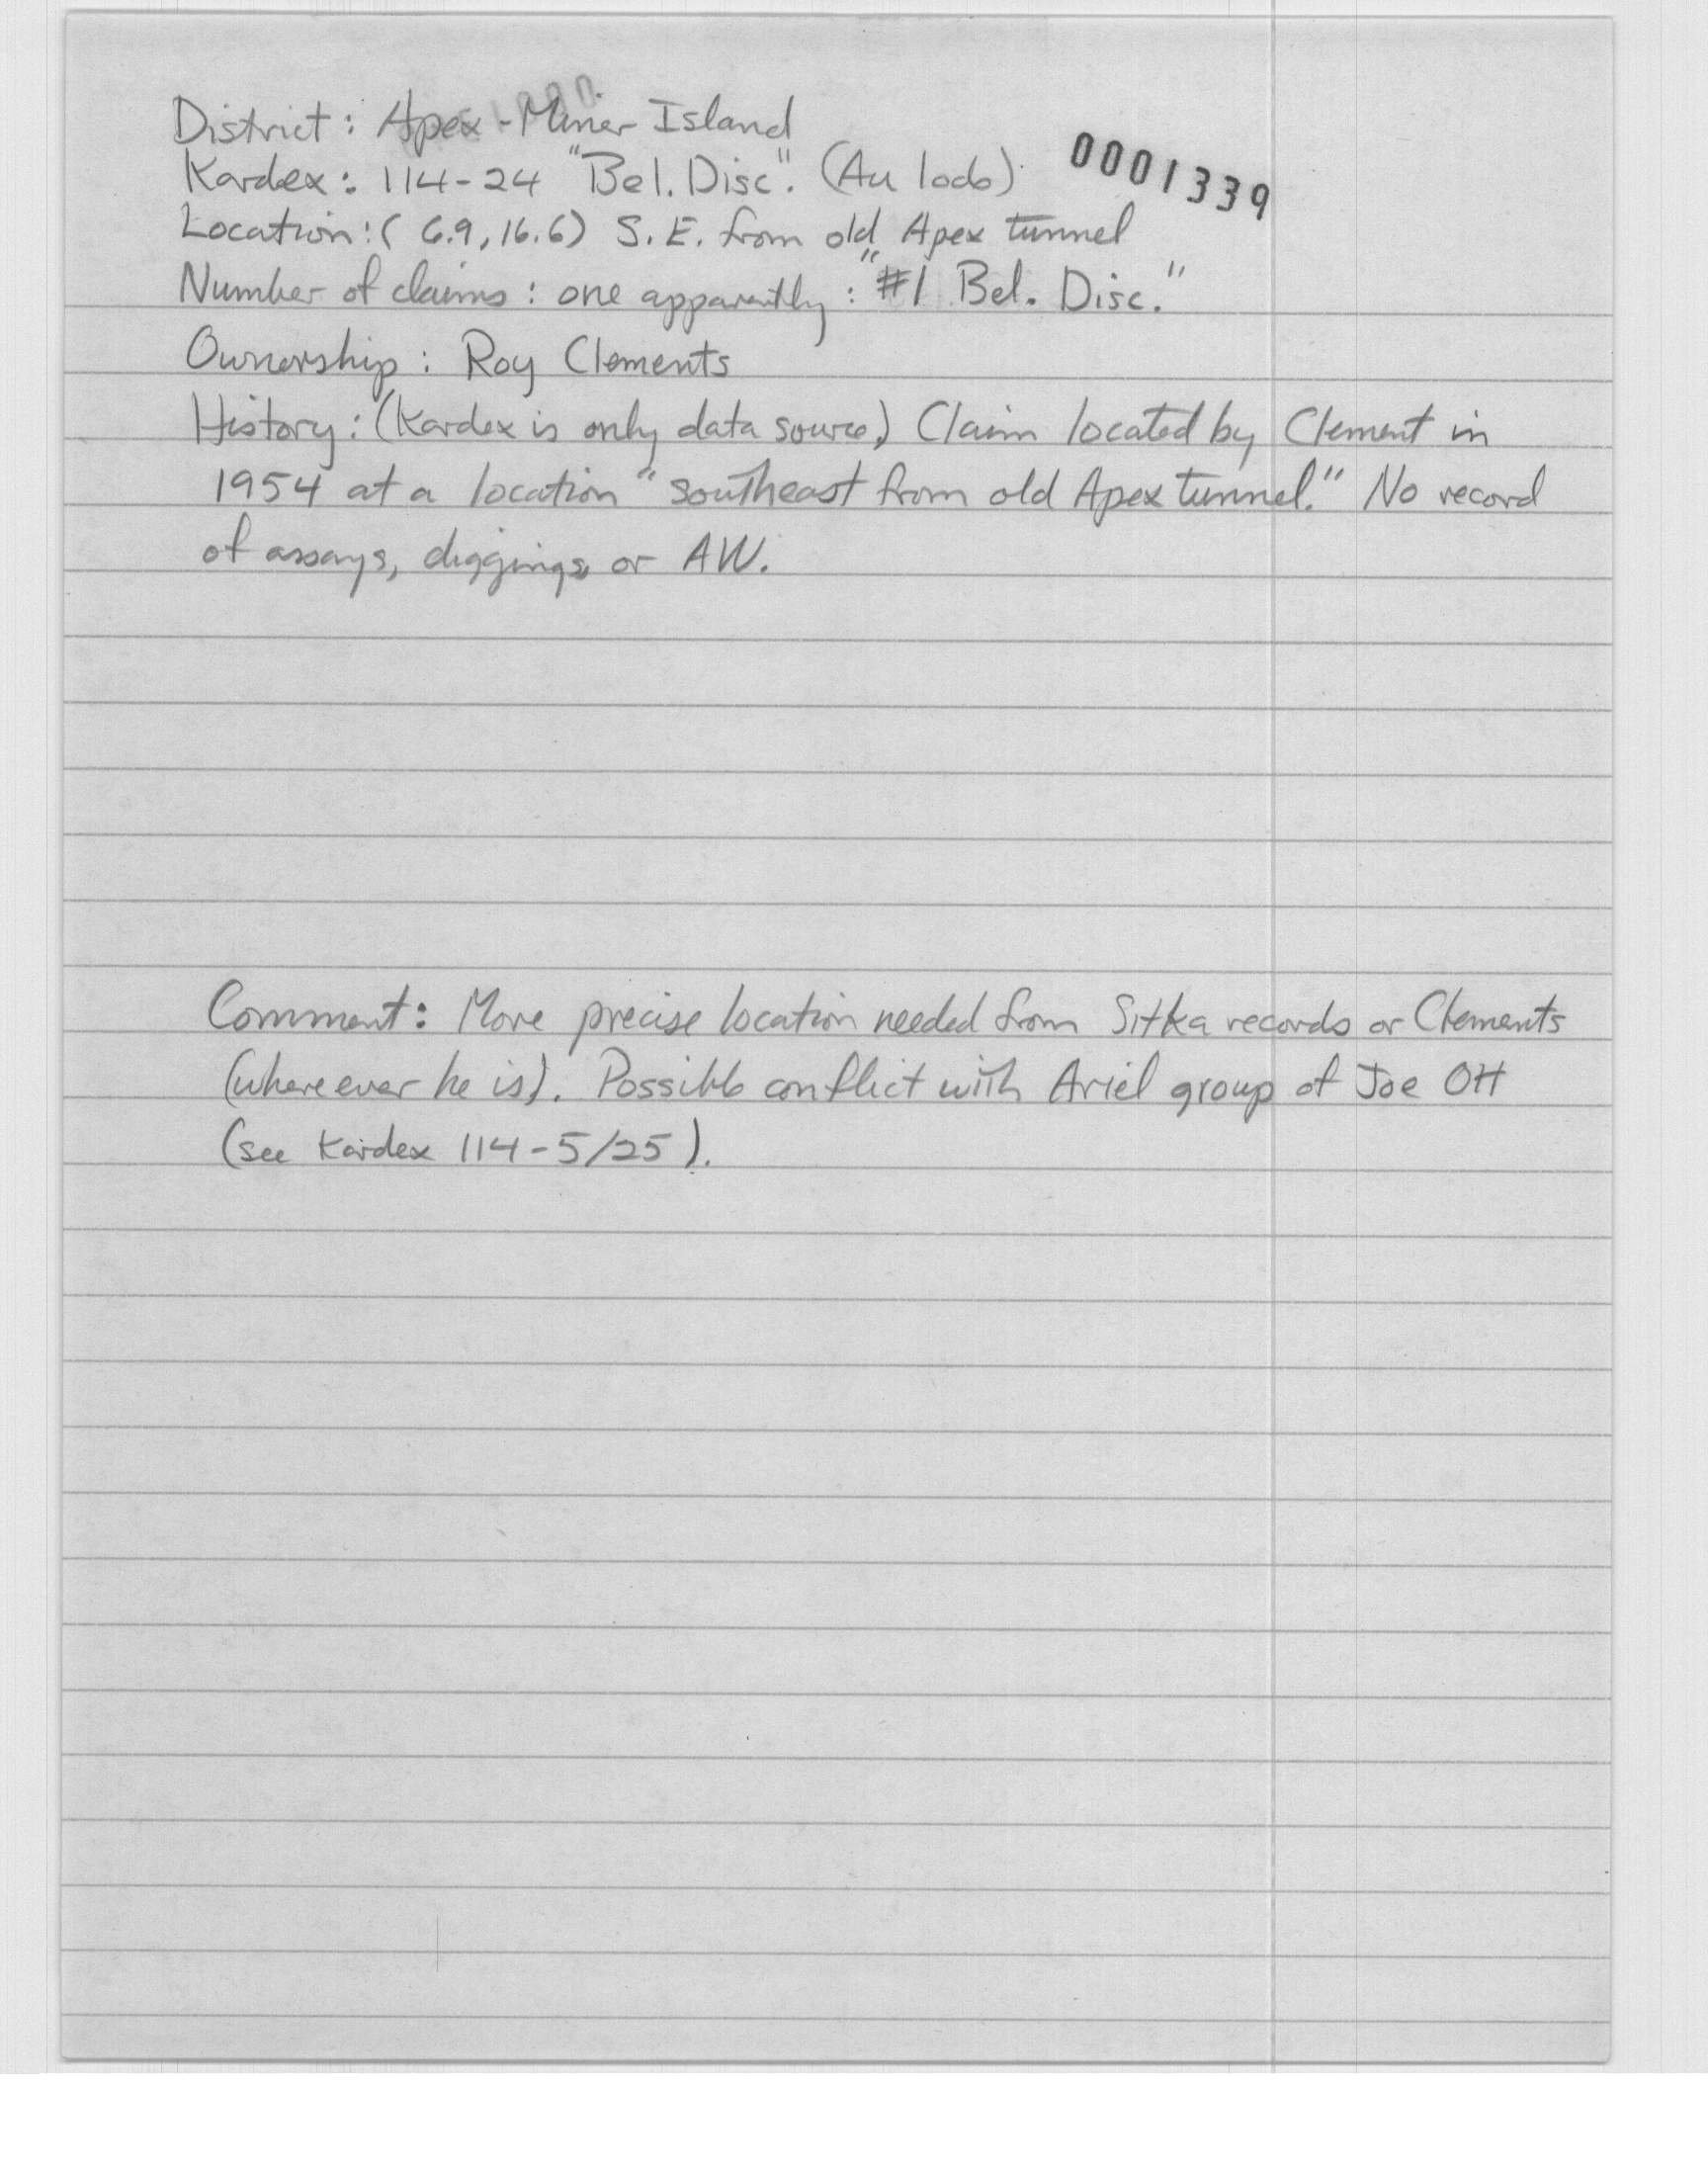 District: Apex-Miner Island
Kardex: 114-24 "Bel. Disc". (Au lode)
0001339
Location: (6.9, 16.6) S.E. from old Apex tunnel
Number of claims: one apparently: "#1 Bel. Disc."
Ownership: Roy Clements
History: (Kardex is only data source) Claim located by Clement in
1954 at a location "southeast from old Apex tunnel." No record
of assays, diggings or AW.
Comment: More precise location needed from Sitka records or Clements
(where ever he is). Possible conflict with Ariel group of Joe Ott
(see Kardex 114-5/25).